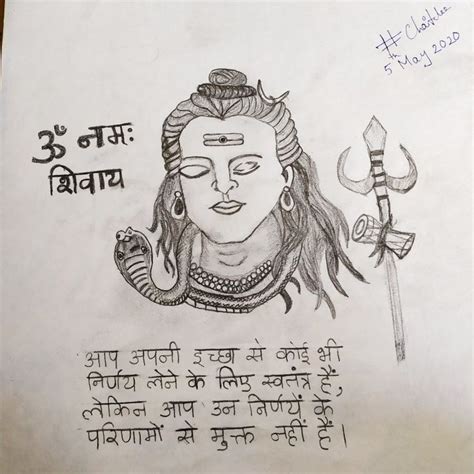 5th May 2020
ॐ नमः
शिवाय
आप अपनी इच्छा से कोई भी
निर्णय लेने के लिए स्वतंत्र हैं,
लेकिन आप उन निर्णयें के
परिणामों से मुक्त नहीं हैं।